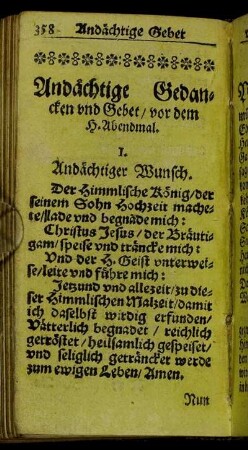 358 Andächtige Gebet
Andächtige Gedan-
cken vnd Gebet / vor dem
H. Abendmal.
I.
Andächtiger Wunsch.
Der Himmlische König / der
seinem Sohn Hochzeit mache-
te / lade vnd begnade mich:
Christus Jesus / der Bräuti-
gam / speise vnd träncke mich:
Vnd der H. Geist vnterwei-
se / leite vnd führe mich:
Jetzund vnd allezeit / zu die-
ser Himmlischen Malzeit / damit
ich daselbst wirdig erfunden /
Vätterlich begnadet / reichlich
getröstet / heilsamlich gespeiset /
vnd seliglich geträncket werde
zum ewigen Leben / Amen.
Nun